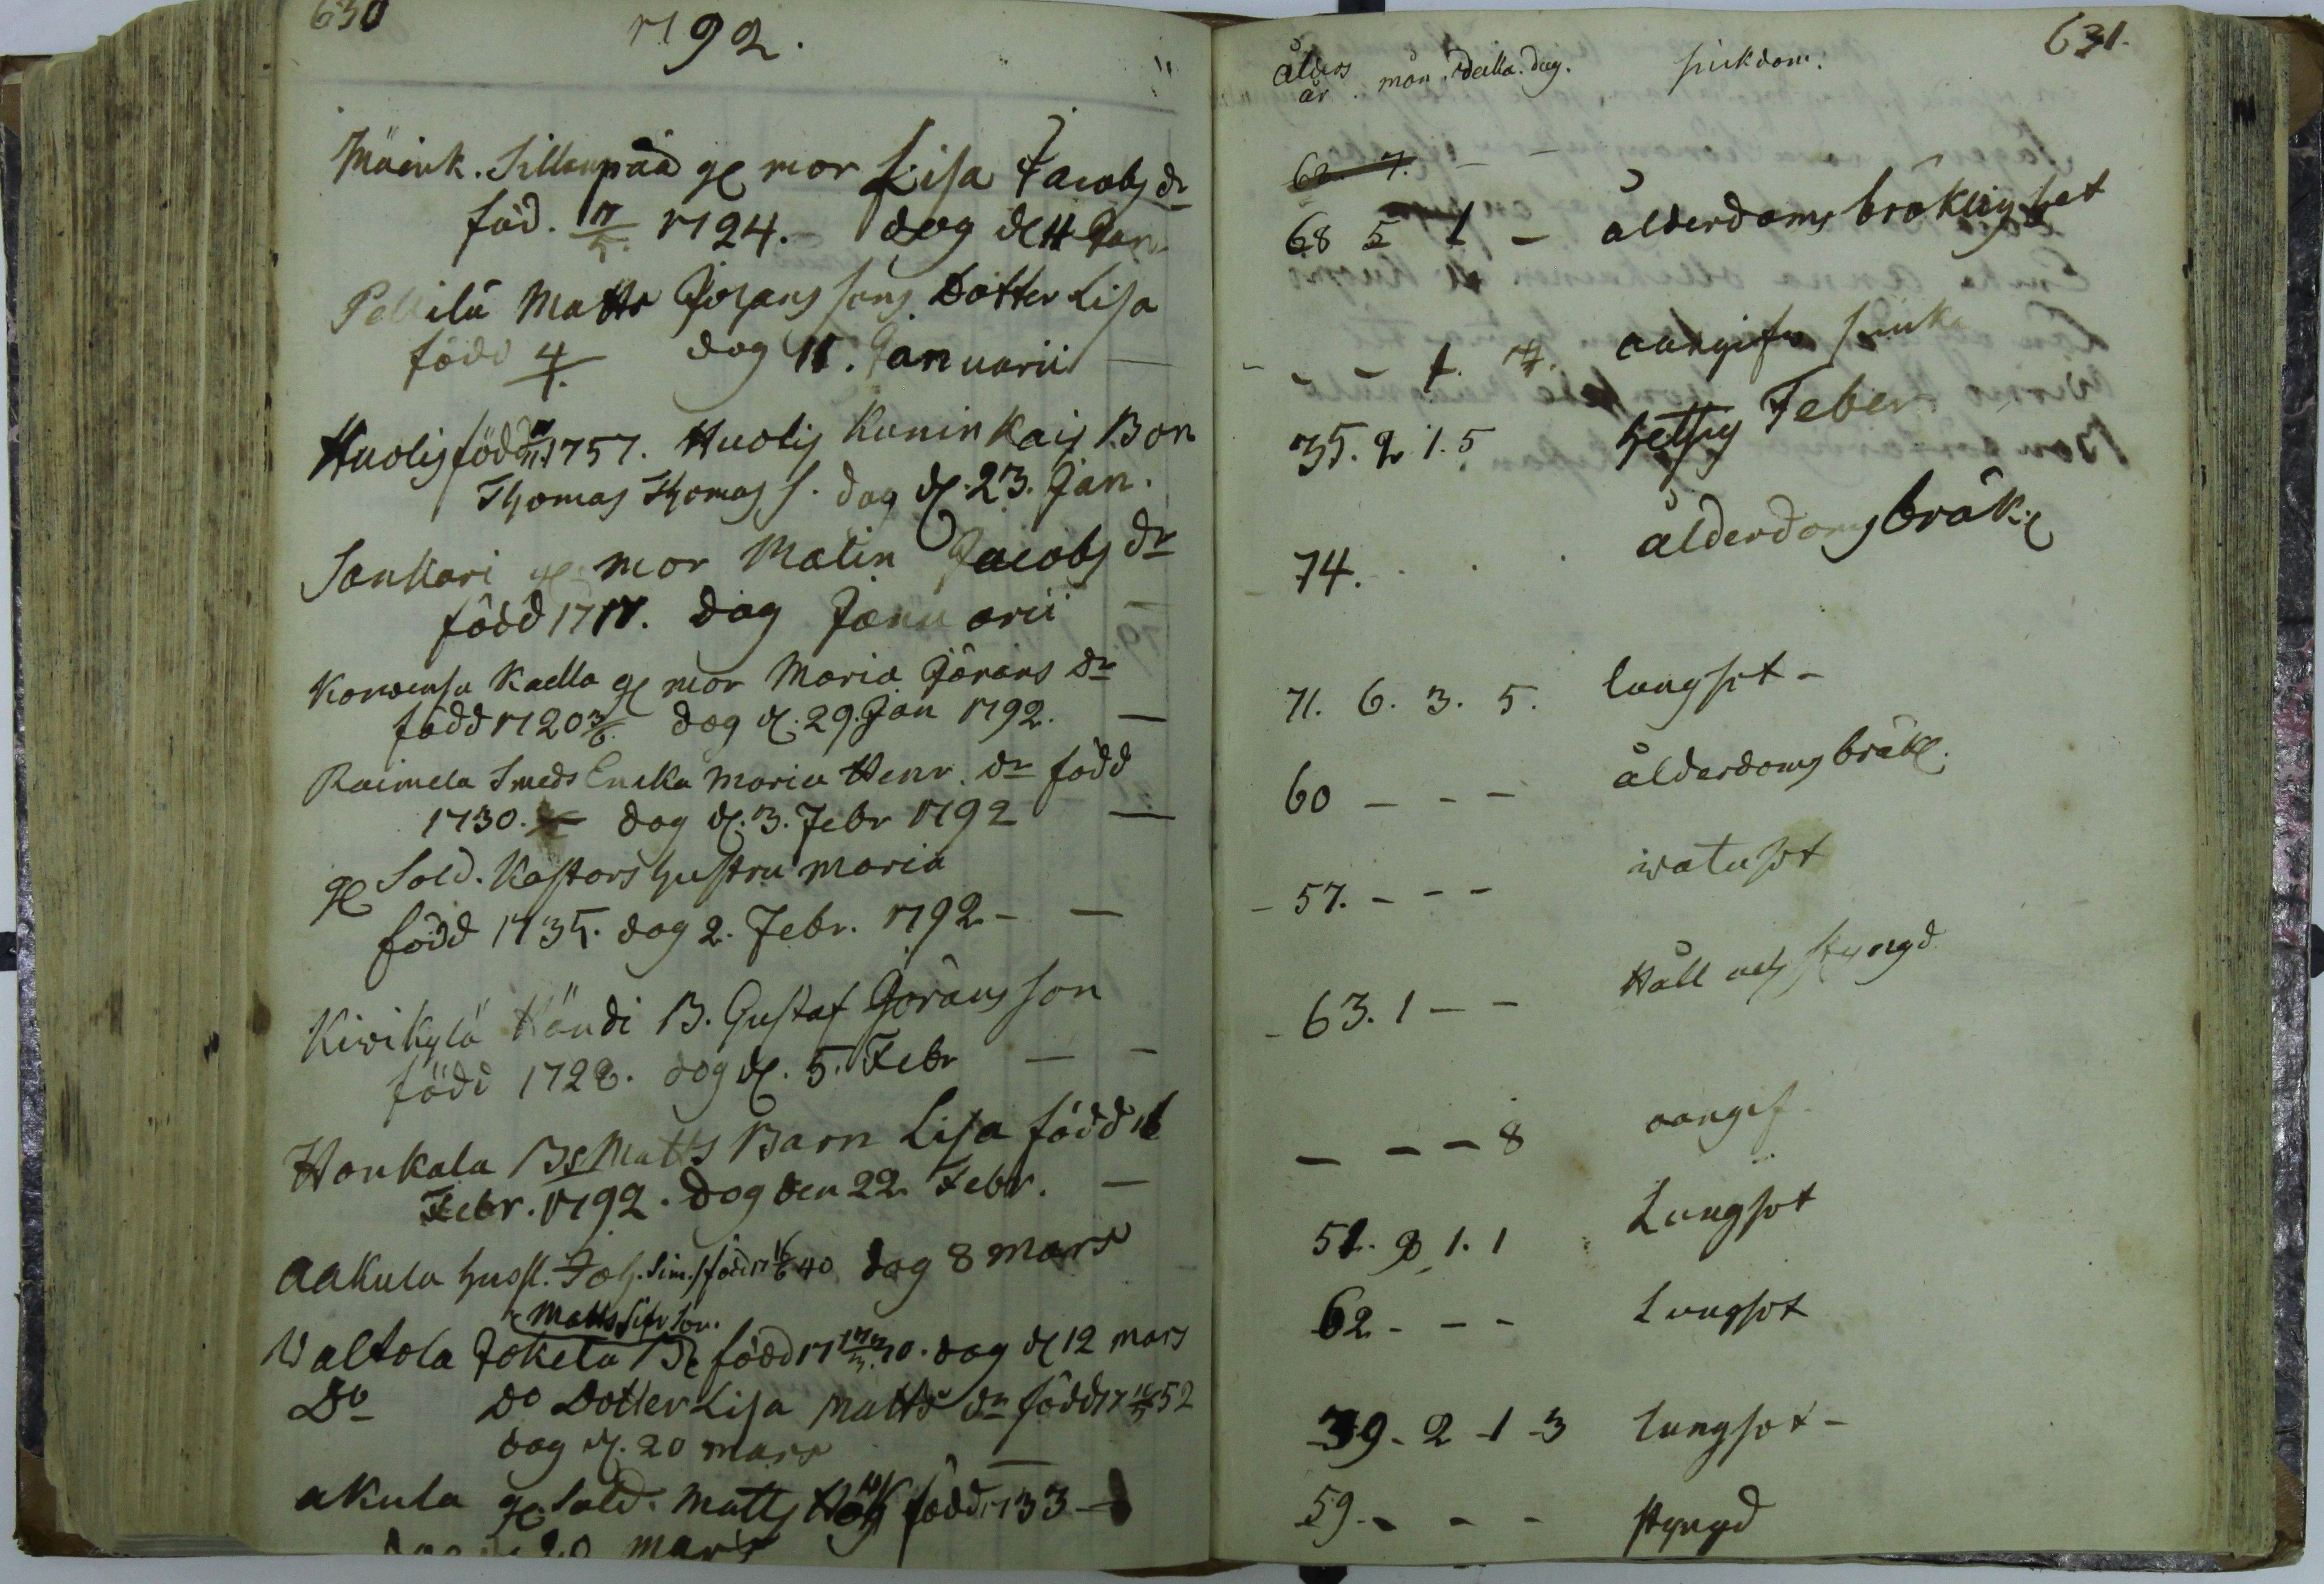 630
1792.
Mäenk. Sillanpää gl mor Lisa Jacobs dr
föd. 17/5. 1724. dog d 11 Jan.
Pellilä Matts Jörans sons Dotter Lisa
född 4/1. dog 11. Januarii
Huolis född 1757. Huolis Kuninkais Bon
Thomas Thomas s. dog d. 23. Jan.
Sankari gl mor Malin Jacobs dr
född 1717. dog Januarii
Kaella gl mor Maria Jörans dr
född 1720 3/6. dog d. 29. Jan 1792.
Raimela Smeds Encka Maria Henr. dr född
1730. dog d. 3. Febr 1792
gl Sold. Kastors hustru Maria
född 1735. dog 2. Febr. 1792 -
Kivikylä Händi B. Gustaf Göransson
född 1728. dog d. 5. Febr
Honkala Bs Matts Barn Lisa född
Febr. 1792. dog den 22 Febr.
Aakula Joh. Sim. s född 17 16/6 40 dog 8 Mars
Matts son.
Valtola Jokela född 17 30. dog d 12 Mars
Do Do Dotter Lisa Matts dr född 17 52
dog d. 20 Mars
Akula gl Sold. Matts född 1733
20 Mars
631.
ålders
år mån. vecka. dag. siukdom.
62. 7. - -
68 5 1 - ålderdoms bräklighet
- - 1. 7. oangifven siuk
35. 2 1. 5 hetsig Feber
74. ålderdoms bräk.
71. 6. 3. 5. lungsot -
60 - - - ålderdoms bräkl.
57. - - - watusot
63. 1 - - Håll och styngd
- - - 8 oangif.
51. 8 1. 1 Lungsot
62 - - - Lungsot
39 - 2 - 1 - 3 lungsot -
59. - - - styngd